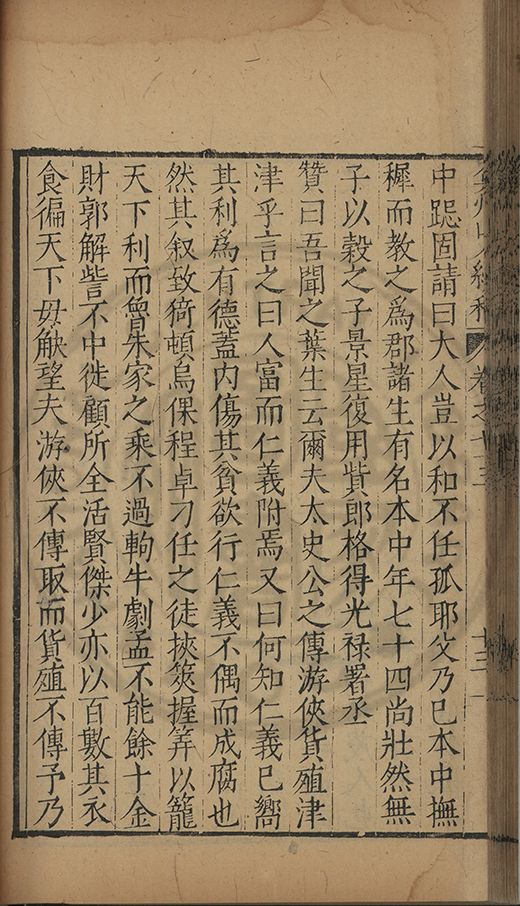 中跽固請曰大人豈以和不任孤耶父乃已本中撫
穉而教之爲郡諸生有名本中年七十四尚壯然無
子以穀之子景星復用貲郎格得光祿署丞
贊曰吾聞之葉生云爾夫太史公之傳游俠貨殖津
津乎言之曰人富而仁義附焉又曰何知仁義已嚮
其利爲有德蓋内傷其貧欲行仁義不偶而成腐也
然其叙致猗頓烏倮程卓刁任之徒挾筴握筭以籠
天下利而曾朱家之乘不過軥牛劇孟不能餘十金
財郭解訾不中徙顧所全活賢傑少亦以百數其衣
食徧天下毋觖望夫游俠不傳取而貨殖不傳予乃
卷之